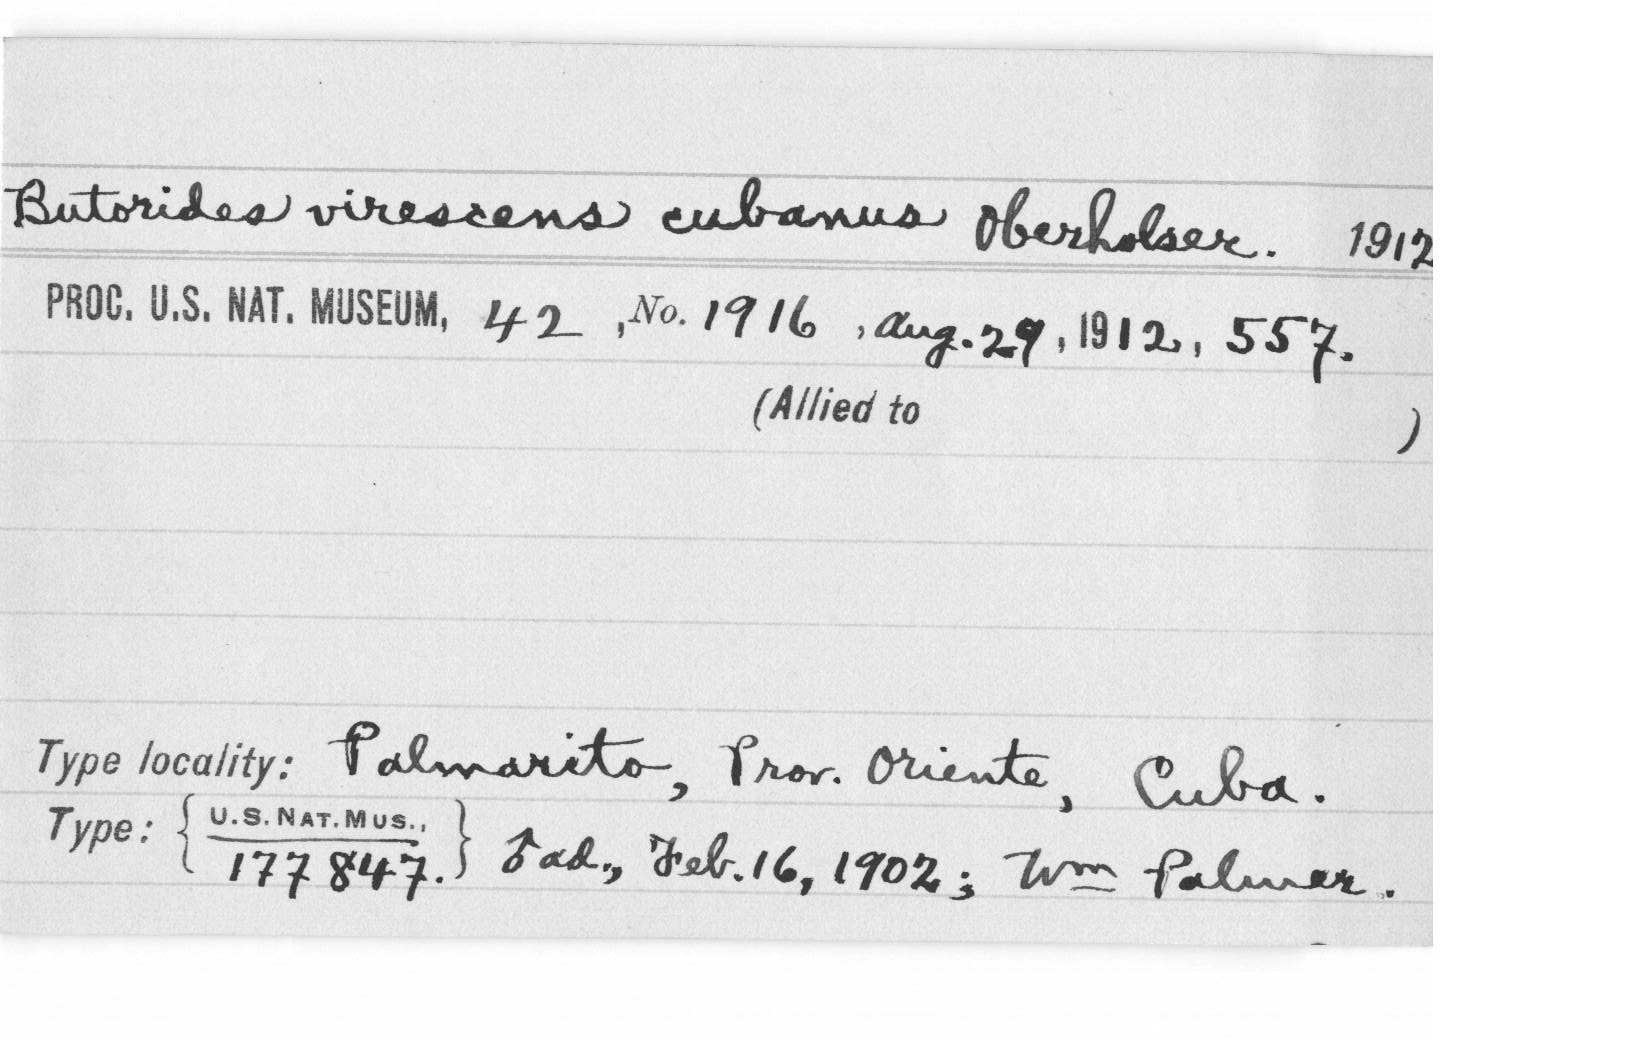 Butorides virescens cubanus Oberholser. 1912
PROC. U.S. NAT. MUSEUM, 42, No. 1916, Aug. 29, 1912, 557.
(Allied to )
Type locality: Palmarito, Prov. Oriente, Cuba.
Type: { U.S. NAT. MUS., 177847. } ♂ ad., Feb. 16, 1902; Wm Palmer.